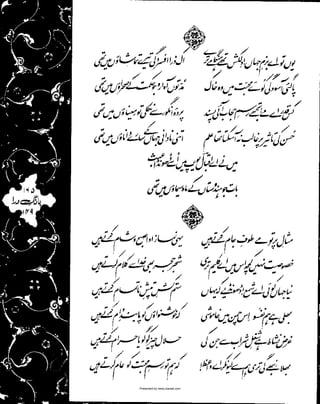 یوں تو اے بزمِ جہاں! دلکش تھے ہنگامے ترے اک ذرا افسردگی تیرے تماشاؤں میں تھی
پا گئی آسودگی کوئے محبت میں وہ خاک مدتوں آوارہ جو حکمت کے صحراؤں میں تھی
کس قدر اے مے! تجھے رسمِ حجاب آئی پسند پردۂ انگور سے نکلی تو میناؤں میں تھی
حسن کی تاثیر پر غالب نہ آ سکتا تھا علم اتنی نادانی جہاں کے سارے داناؤں میں تھی
میں نے اے اقبال یورپ میں اسے ڈھونڈا عبث
بات جو ہندوستاں کے ماہ سیماؤں میں تھی
بانگِ درا
مثالِ پرتوِ مے طوفِ جام کرتے ہیں یہی نماز ادا صبح و شام کرتے ہیں
خصوصیت نہیں کچھ اس میں اے کلیم تری شجر حجر بھی خدا سے کلام کرتے ہیں
نیا جہاں کوئی اے شمع ڈھونڈیے کہ یہاں ستم کشِ تپشِ ناتمام کرتے ہیں
بھلی ہے ہم نفسو اس چمن میں خاموشی کہ خوشنواؤں کو پابندِ دام کرتے ہیں
غرض نشاط ہے شغلِ شراب سے جن کی حلال چیز کو گویا حرام کرتے ہیں
بھلا نبھے گی تری ہم سے کیونکر اے واعظ! کہ ہم تو رسمِ محبت کو عام کرتے ہیں
Presented by www.ziaraat.com